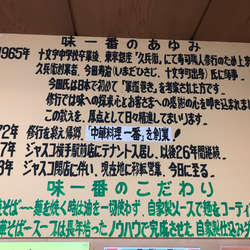 味一番のあゆみ
1965年 十文字中学校卒業後、東京銀座「久兵衛」にて寿司職人修行のため上京
久兵衛創業者、今田寿治(いまだひさじ、十文字町出身)氏に師事
今田氏は日本で初めて「軍艦巻き」を考案された方です。
修行では味への探求心とお客さまへの感謝の心を叩き込まれま
この教えを、原点として日々精進してまいります。
72年 修行を終え帰郷、「中華料理 一番」を創業
7年 ジャスコ横手駅前店にテナント入居し、以後26年間継続
年 ジャスコ閉店に伴い、現在地に移転営業、今日に至る。
味一番のこだわり
そば…麺を焼く時は油を一切使わず、自家製ソースで麺をコーティ
そばスープは長年培ったノウハウで完成させた自家製